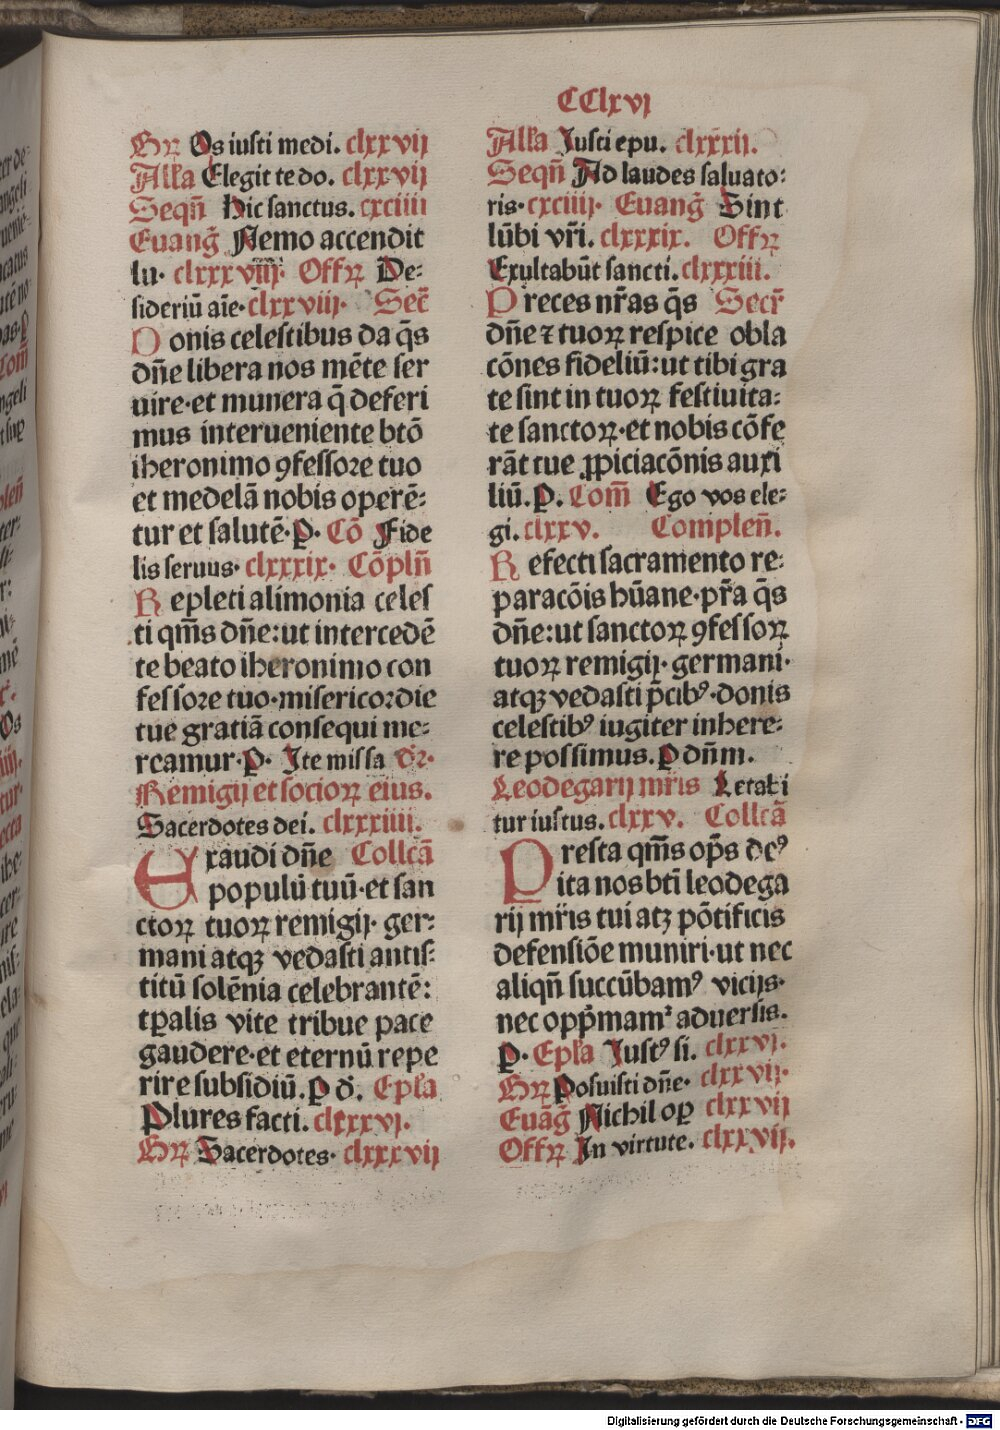 CClxvj
Gꝛ Os iusti medi. clxxvij
Allʼa Elegit te do. clxxvij
Seqñ Hic sanctus. cxciiii
Euang̃ Nemo accendit
lu· clxxxviiij· Offꝝ De-
sideriũ aĩe· clxxviij· Secr̃
Donis celestibus da q̃s
dñe libera nos mẽte ser
uire·et munera q̃ deferi
mus interueniente btõ
iheronimo ꝯfessoꝛe tuo
et medelã nobis operẽ-
tur et salutẽ·ꝑ· Cõ Fide
lis seruus· clxxxix· Cõplñ
Repleti alimonia celes
ti qm̃s dñe:ut intercedẽ
te beato iheronimo con
fessoꝛe tuo·misericoꝛdie
tue gratiã consequi me-
reamur·ꝑ· Ite missa dꝛ·
Remigij et socioꝝ eius.
Sacerdotes dei. clxxxiiii.
Exaudi dñe Collcã
populũ tuũ·et san
ctoꝝ tuoꝝ remigij· ger-
mani atqꝫ vedasti antis-
titũ solẽnia celebrantẽ:
tꝑalis vite tribue pace
gaudere·et eternũ repe
rire subsidiũ.ꝑ d̃. Epʼla
Plures facti. clxxxvj.
Gꝝ Sacerdotes· clxxxvij
Allʼa Iusti epu. clxxxij.
Seqñ Ad laudes saluato:
ris· cxciiij· Euang̃ Sint
lũbi vr̃i. clxxxix. Offꝝ
Exultabũt sancti. clxxxiii.
Preces nr̃as q̃s Secr̃
dñe ⁊ tuoꝝ respice obla
cõnes fideliũ:ut tibi gra
te sint in tuoꝝ festiuita:
te sanctoꝝ·et nobis cõfe
rãt tue ꝓpiciacõnis auxi
liũ.ꝑ. Com̃ Ego vos ele-
gi. clxxv. Compleñ.
Refecti sacramento re-
paracõis hũane·pr̃a q̃s
dñe:ut sanctoꝝ ꝯfessoꝝ
tuoꝝ remigij· germani·
atqꝫ vedasti p̃cibꝰ·donis
celestibꝰ iugiter inhere-
re possimus.ꝑ dñm.
Leodegarij mr̃is Letabi
tur iustus. clxxv. Collcã
Presta qm̃s op̃s deꝰ
ita nos bti̇̃ leodega
rij mr̃is tui atꝫ põtificis
defensiõe muniri·ut nec
aliqñ succũbamꝰ vicijs·
nec opp̃mamꝰ aduersis.
ꝑ· Epʼla Iustꝰ si. clxxvj.
Gꝝ Posuisti dñe· clxxvij·
Euãg̃ Nichil oꝑ clxxvij
Offꝝ In virtute. clxxvij.
Digitalisierung gefördert durch die Deutsche Forschungsgemeinschaft · DFG